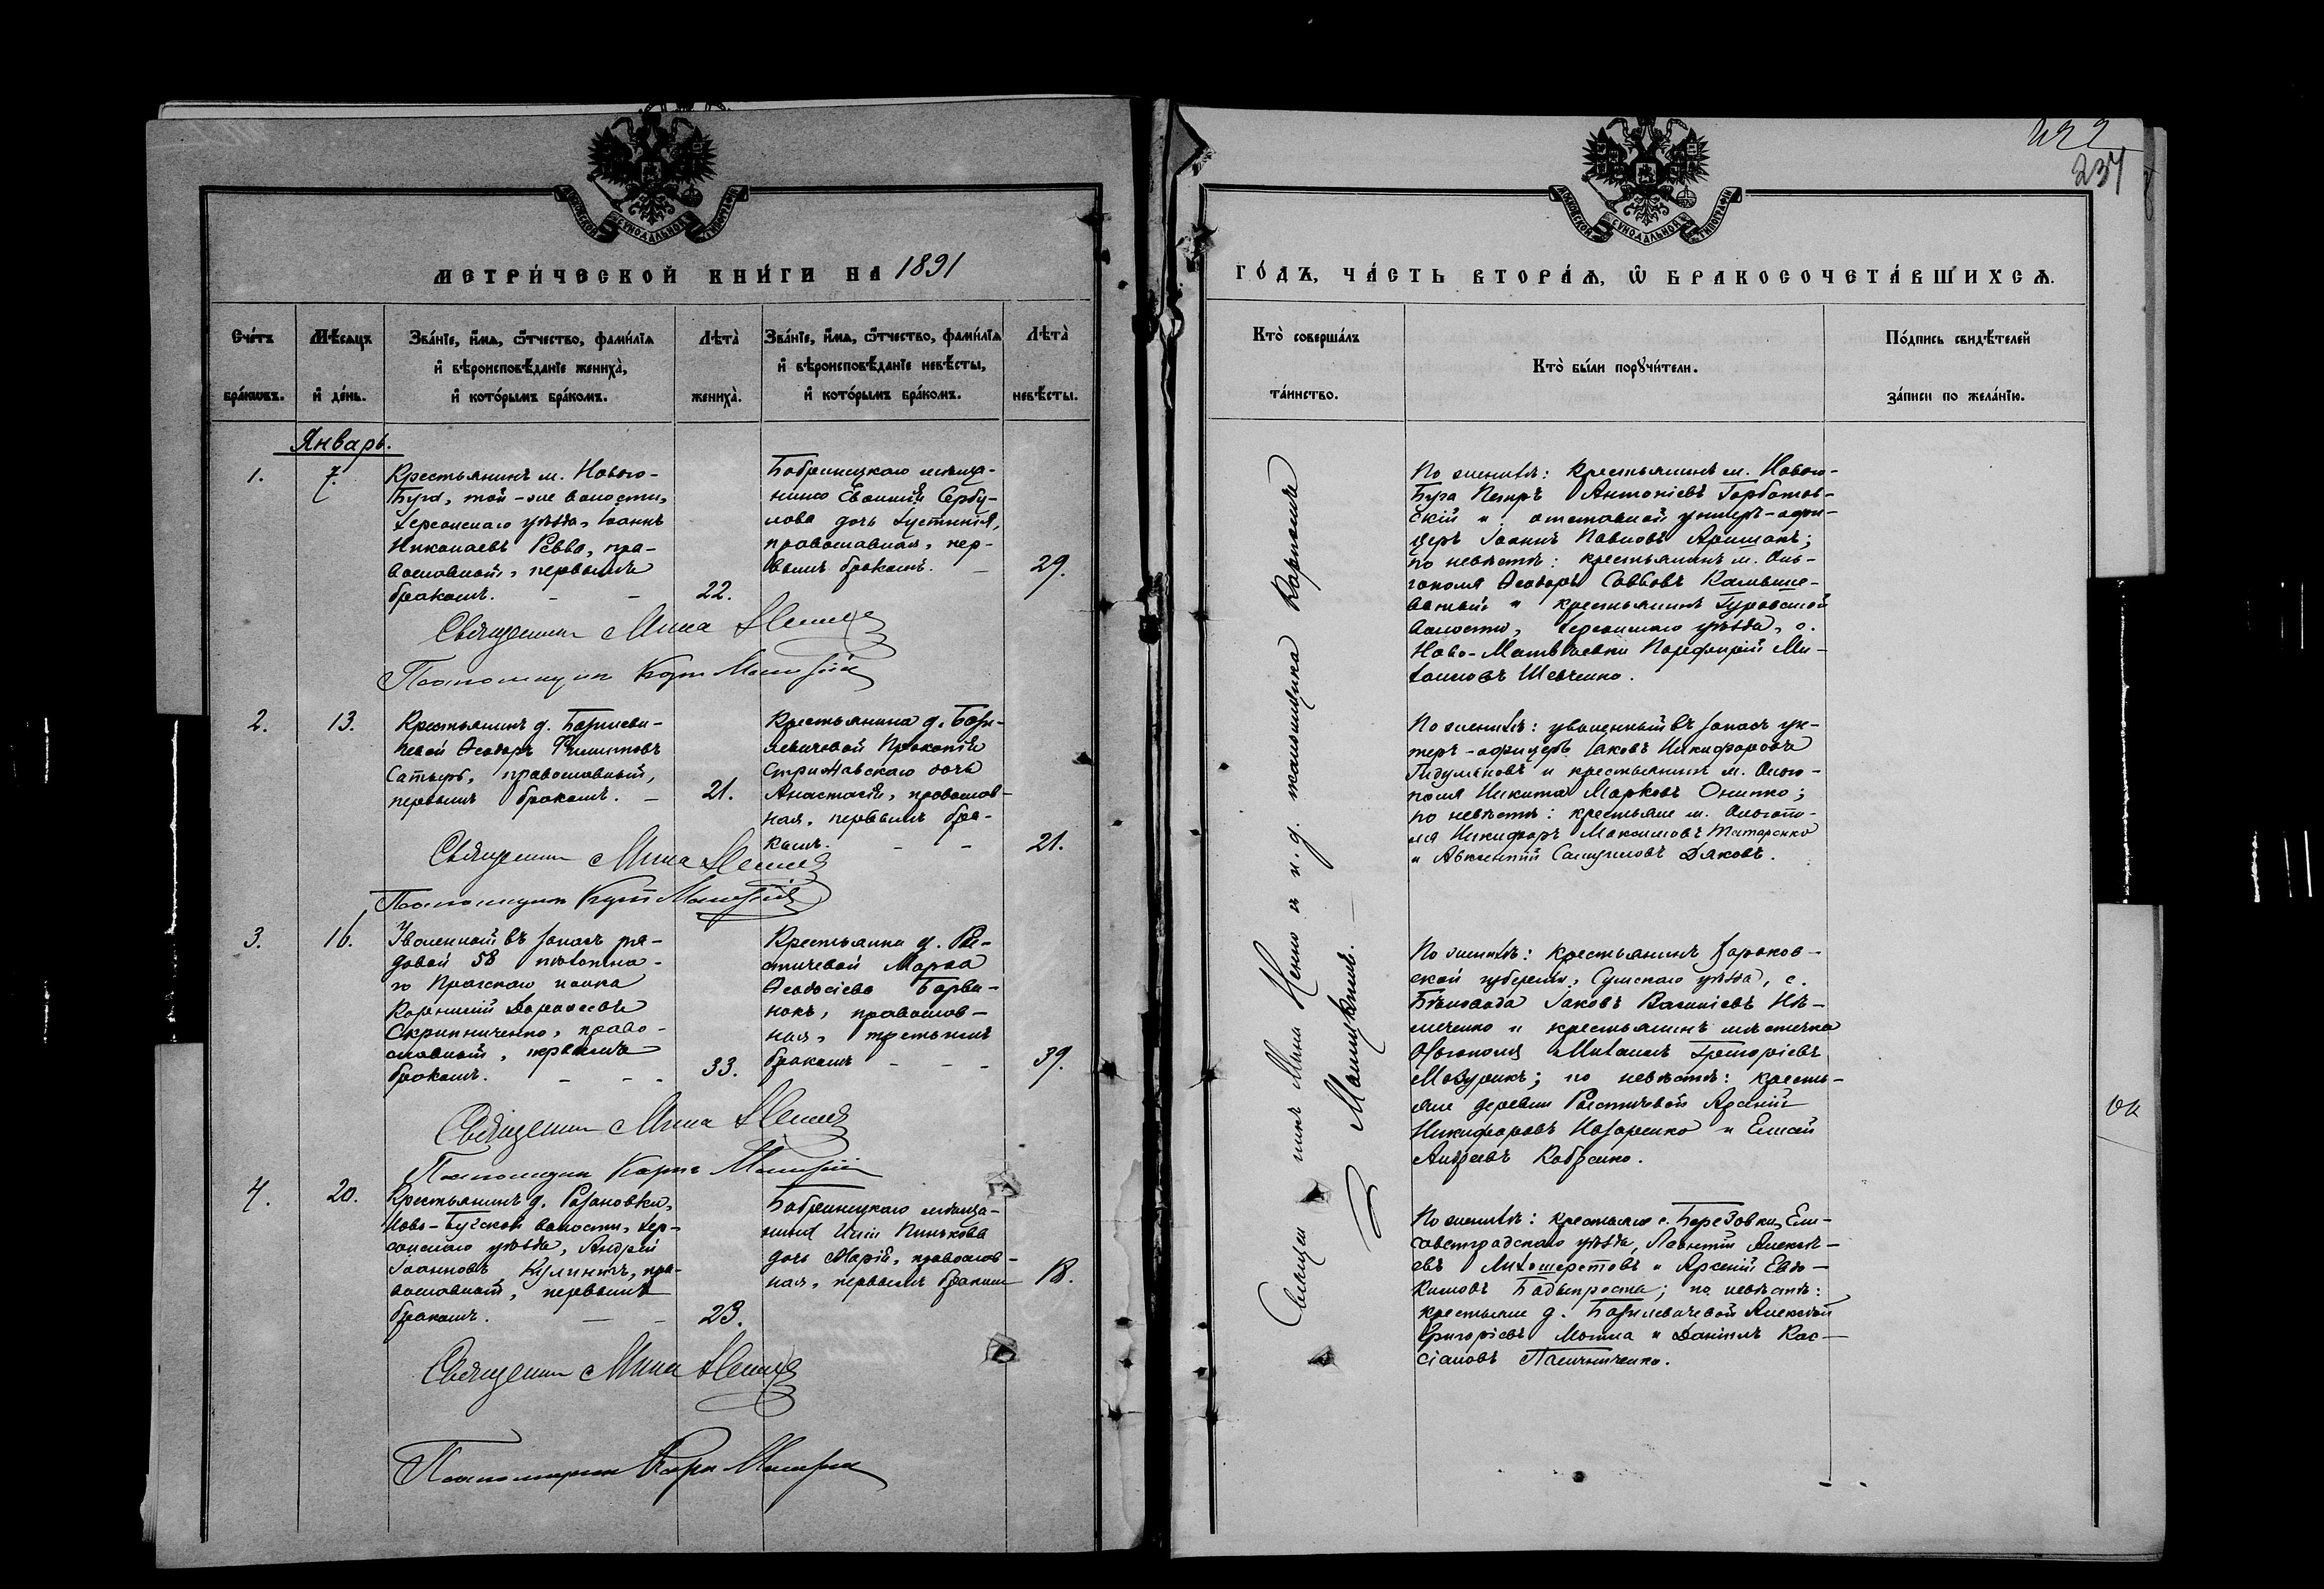 МОСКОВСКОЙ СУНОДАЛЬНОЙ ТИПОГРАФІИ
МЕТРИ́ЧЕСКОЙ КНИ́ГИ НА 1891
Сче́тъ бра́кѡвъ.
Мѣ́сяцъ и де́нь.
Зва́нїе, и́мѧ, ѻ҆́тчество, фами́лїѧ
и҆ вѣроисповѣ́данїе жениха̀,
и҆ кото́рымъ бра́комъ.
Лѣта̀ жениха̀.
Зва́нїе, и́мѧ, ѻ҆́тчество, фами́лїѧ
и҆ вѣроисповѣ́данїе невѣ́сты,
и҆ кото́рымъ бра́комъ.
Лѣта̀ невѣ́сты.
Январь.
1.
7.
Крестьянинъ м. Новаго-
Буга, той-же волости,
Херсонскаго уѣзда, Іоаннъ
Николаевъ Ревва, пра-
вославный, первымъ
бракомъ.
22.
Бобринецкаго мѣща-
нина Евѳимія Сербу-
лова дочь Іустинія,
православная, пер-
вымъ бракомъ.
29.
Священникъ Мина
Псаломщикъ
2.
13.
Крестьянинъ д.
Ѳеодоръ Филипповъ
Сатыръ, православный,
первымъ бракомъ.
21.
Крестьянина д.
Прокопія
Стрижавскаго дочь
Анастасія, православ-
ная, первымъ бра-
комъ.
21.
Священникъ Мина
Псаломщикъ
3.
16.
Уволенный въ запасъ ря-
довой 58 пѣхотна-
го Пражскаго полка
Корнилій
Скрипниченко, право-
славный, первымъ
бракомъ.
33.
Крестьянка д.
Марѳа
Ѳеодосіева
православ-
ная, третьимъ
бракомъ
39.
Священникъ Мина
Псаломщикъ Карпъ
4.
20.
Крестьянинъ д. Розановки,
Ново-Бугской волости, Хер-
сонскаго уѣзда, Андрей
Іоанновъ пра-
вославный, первымъ
бракомъ.
23.
Бобринецкаго мѣща-
нина Иліи
дочь Марія, православ-
ная, первымъ бракомъ
18.
Священникъ Мина
Псаломщикъ Карпъ
237
МОСКОВСКОЙ СУНОДАЛЬНОЙ ТИПОГРАФІИ
ГО́ДЪ, ЧА́СТЬ ВТОРА́Ѧ, Ѽ БРАКОСОЧЕТА́ВШИХСѦ.
Кто̀ соверша́лъ та́инство.
Кто̀ бы́ли порꙋчи́тели.
По́дпись свидѣ́телей за́писи по жела́нїю.
Священникъ Мина и и. д. псаломщика
По женихѣ: крестьянинъ м. Новаго-
Буга Петръ Антоніевъ Горбатов-
скій и отставной унтеръ-офи-
церъ Іоаннъ Павловъ
по невѣстѣ: крестьянинъ м. Оль-
гополя Ѳеодоръ Саввовъ Камыше-
ватый и крестьянинъ Гуровской
волости, Херсонскаго уѣзда, с.
Ново-Матвѣевки Порфирій Ми-
хаиловъ Шевченко.
По женихѣ: уволенный въ запасъ ун-
теръ-офицеръ Іаковъ Никифоровъ
и крестьянинъ м. Ольго-
поля Никита Марковъ Онипко;
по невѣстѣ: крестьяне м. Ольгопо-
ля Никифоръ Максимовъ Татаренко
и Авксентій Самуиловъ Дяковъ.
По женихѣ: крестьянинъ Харьков-
ской губерніи, Сумскаго уѣзда, с.
Бѣловода Іаковъ Василіевъ
и крестьянинъ мѣстечка
Ольгополя Михаилъ Григоріевъ
Мазурикъ; по невѣстѣ: кресть-
яне деревни Арсеній
Никифоровъ Назаренко и Елисей
Андреевъ
По женихѣ: крестьяне с. Березовки, Ели-
саветградскаго уѣзда, Леонтій Алексѣ-
евъ Лихошерстовъ и Арсеній Евдо-
кимовъ по невѣстѣ:
крестьяне д. Алексѣй
Григоріевъ Могила и Даніилъ Кас-
сіановъ